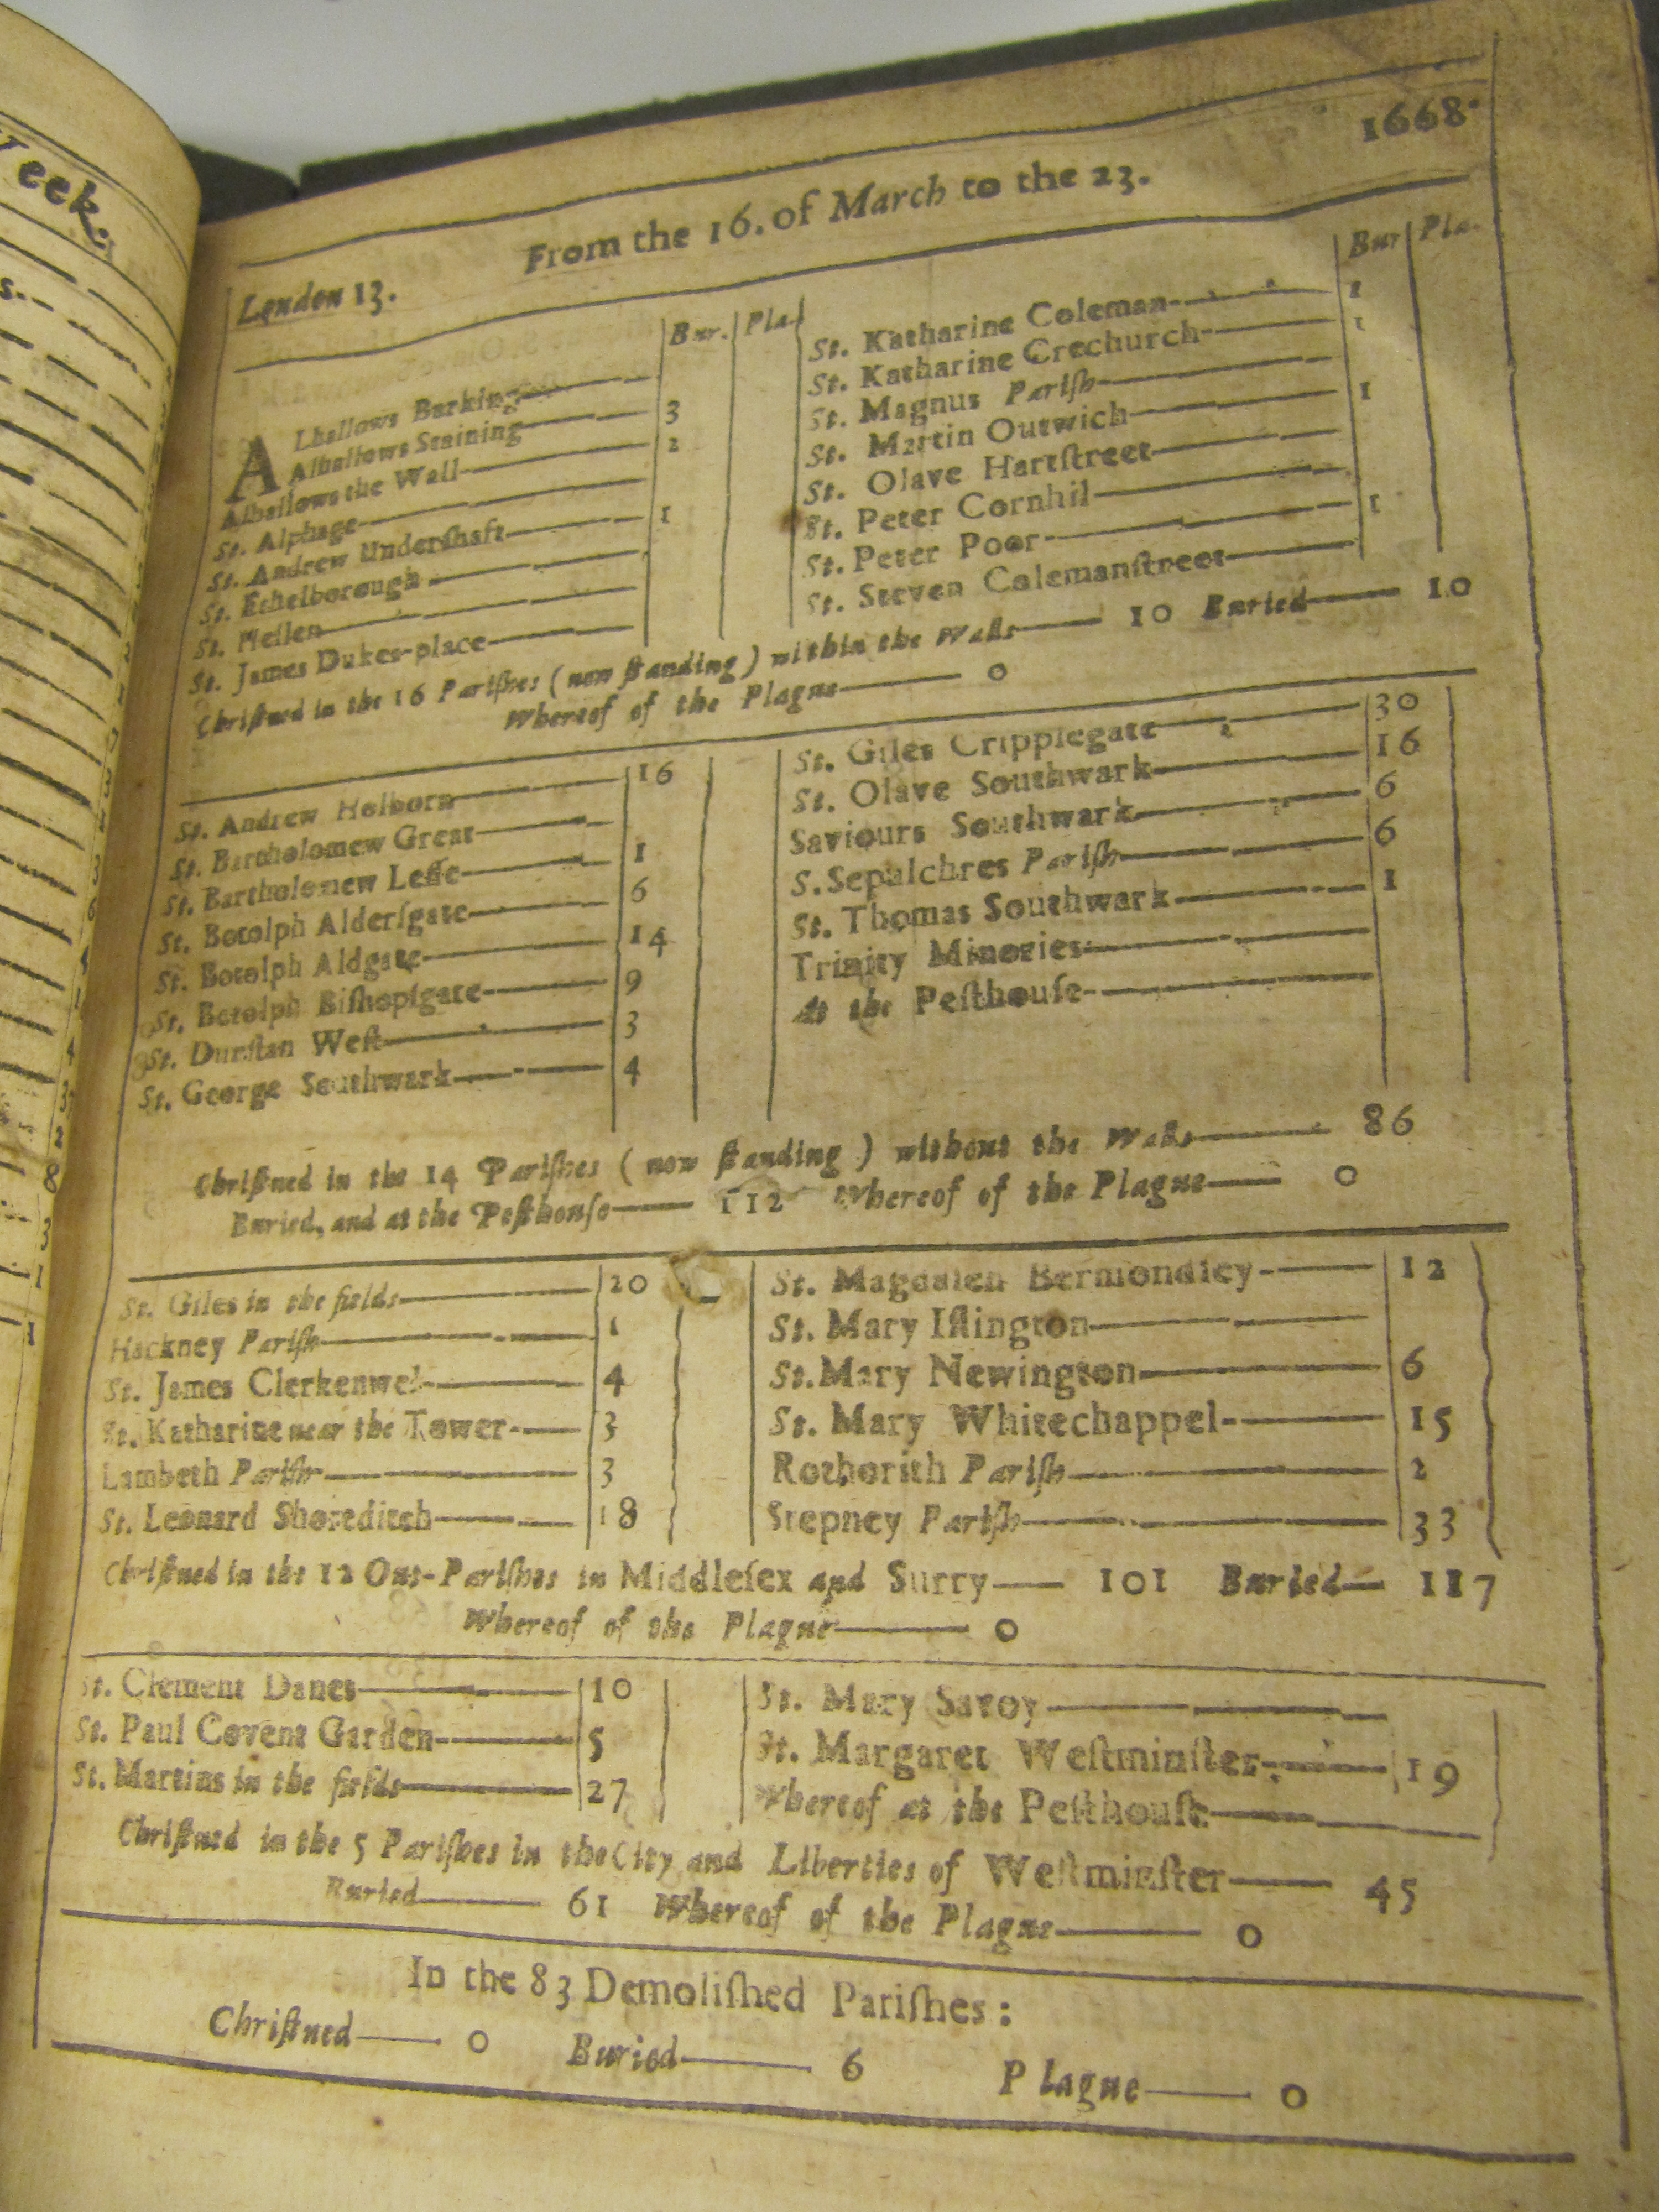 eek.
1668.
From the 16. of March to the 23.
London 13.
Bur. Pla.
ALhallows Barking
Alhallows Staining 3
Alhallows the Wall 2
St. Alphage
St. Andrew Underſhaft 1
St. Ethelborough
St. Hellen
St. James Dukes-place
Bur Pla.
St. Katharine Coleman 1
St. Katharine Crechurch 1
St. Magnus Pariſh
St. Martin Outwich 1
St. Olave Hartſtreet
St. Peter Cornhil
St. Peter Poor 1
St. Steven Colemanſtreet
Chriſtned in the 16 Pariſhes (now ſtanding) within the Walls 10 Buried 10
Whereof of the Plague 0
St. Andrew Holborn 16
St. Bartholomew Great
St. Bartholomew Leſſe 1
St. Botolph Alderſgate 6
St. Botolph Aldgate 14
St. Botolph Biſhopſgate 9
St. Dunſtan Weſt 3
St. George Southwark 4
St. Giles Cripplegate 30
St. Olave Southwark 16
Saviours Southwark 6
S. Sepulchres Pariſh 6
St. Thomas Southwark 1
Trinity Minories
At the Peſthouſe
Chriſtned in the 14 Pariſhes (now ſtanding) without the Walls 86
Buried, and at the Peſthouſe 112 Whereof of the Plague 0
St. Giles in the fields 20
Hackney Pariſh 1
St. James Clerkenwel 4
St. Katharine near the Tower 3
Lambeth Pariſh 3
St. Leonard Shoreditch 18
St. Magdalen Bermondſey 12
St. Mary Iſlington
St. Mary Newington 6
St. Mary Whitechappel 15
Rothorith Pariſh 2
Stepney Pariſh 33
Chriſtned in the 12 Out-Pariſhes in Middleſex and Surry 101 Buried 117
Whereof of the Plague 0
St. Clement Danes 10
St. Paul Covent Garden 5
St. Martins in the fields 27
St. Mary Savoy
St. Margaret Weſtminſter 19
Whereof at the Peſthouſe
Chriſtned in the 5 Pariſhes in the City and Liberties of Weſtminſter 45
Buried 61 Whereof of the Plague 0
In the 83 Demoliſhed Pariſhes:
Chriſtned 0 Buried 6 Plague 0